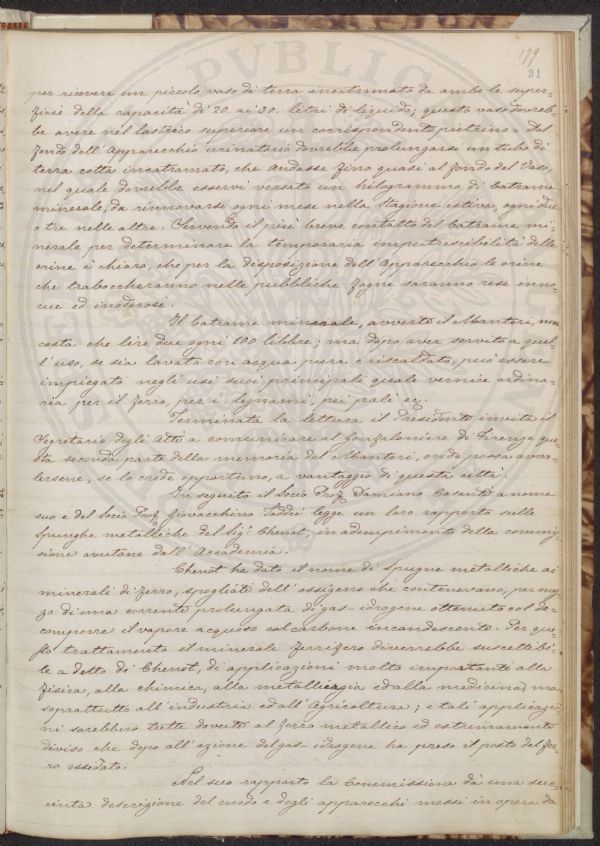 177
91
per ricevere un piccolo vaso di terra incatramato da ambe le super=
ficie della capacità di 20. ai 30. litri di liquido; questo vaso dovreb=
be avere nel lastrico superiore un corrispondente pietrino= Dal
fondo dell'Apparecchio urinatorio dovrebbe prolungarsi un tubo di
terra cotta incatramato, che andasse fino quasi al fondo del Vaso,
nel quale dovrebbe esservi versato un kilogrammo di Catrame
minerale, da rinnovarsi ogni mese nella Stagione estiva, ogni due
o tre nelle altre. Servendo il più breve contatto del Catrame mi=
nerale per determinare la temporaria imputrescibilità delle
orine è chiaro, che per la disposizione dell'Apparecchio le orine
che traboccheranno nelle pubbliche fogne saranno rese inno=
cue ed inodorose.
Il Catrame minerale, avverte il Manteri, non
costa che lire due ogni 100 libbre; ma dopo aver servito a quel=
l'uso, se sia lavato con acqua pura e riscaldato, può essere
impiegato negli usi suoi principali quale vernice ordina=
ria per il ferro, per i legnami, pei pali ec.
Terminata la lettura il Presidente invita il
Segretario degli Atti a comunicare al Gonfaloniere di Firenze que=
sta seconda parte della memoria del Manteri, onde possa avva=
lersene, se lo crede opportuno, a vantaggio di questa città.
In seguito il Socio Prof. Damiano Casanti a nome
suo e del Socio Prof. Giovacchino Taddei legge un loro rapporto sulle
Spunghe metalliche del Sig.r Chenot, in adempimento della commis=
sione avutane dall'Accademia.
Chenot ha dato il nome di Spugne metalliche ai
minerali di ferro, spogliati dell'ossigeno che contenevano, per mez=
zo di una corrente prolungata di gas-idrogene ottenuto col de=
comporre il vapore acquoso col carbone incandescente. Per que=
sto trattamento il minerale ferrifero diverrebbe suscettibi=
le a detto di Chenot, di applicazioni molto importanti alla
fisica, alla chimica, alla metallurgia ed alla medicina, ma
soprattutto all'industria ed all'Agricoltura; e tali applicazio=
ni sarebbero tutte dovute al ferro metallico ed estremamente
diviso che dopo all'azione del gas-idrogene ha preso il posto del fer=
ro ossidato.
Nel suo rapporto la Commissione dà una suc=
cinta descrizione del modo e degli apparecchi messi in opera da